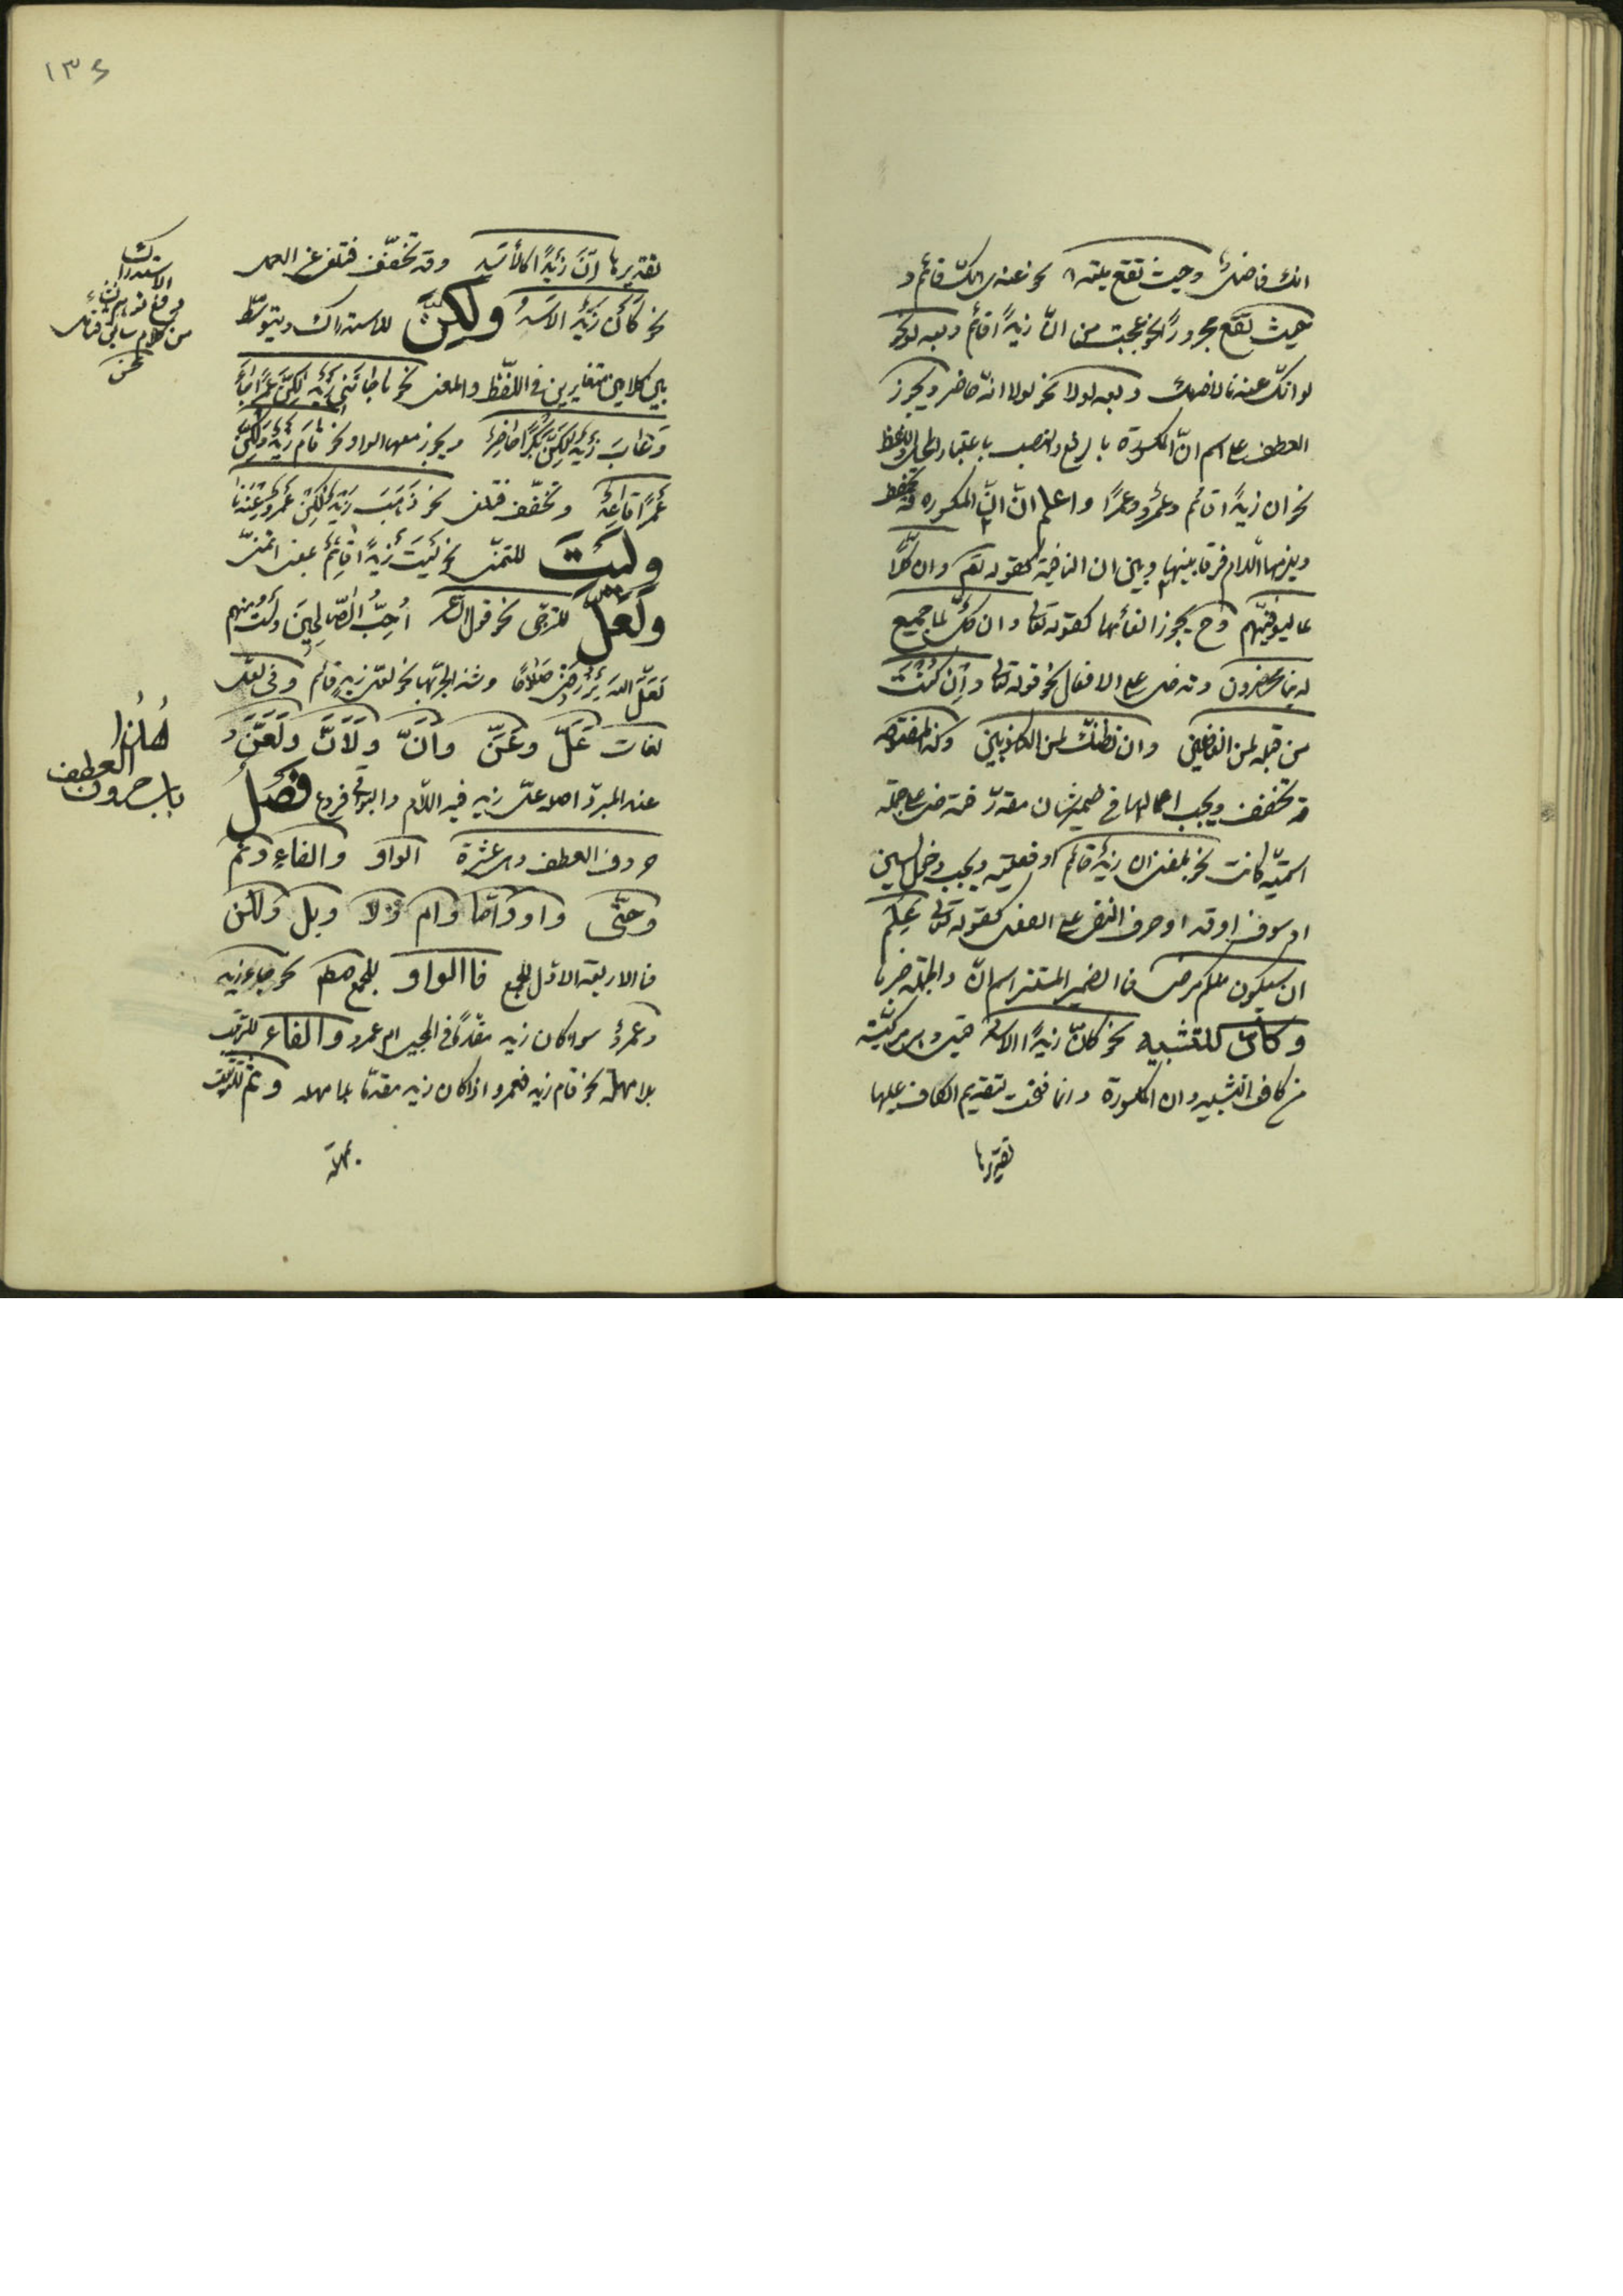 انك فاضل وحيث تقع مبتدا نحو عندى انك قائم و
حيث تقع مجرورًا نحو عجبت من انّ زيدًا قائم وبعد لو نحو
لو انك عندنا لاخدمك وبعد لولا نحو لولا انه حاضر ويجوز
العطف على اسم انّ المكسورة بالرفع والنصب باعتبار المحل واللفظ
نحو ان زيدًا قائم وعمرٌو وعمرًا واعلم انّ انّ المكسوره قد تخفف
ويلزمها اللام فرقا بينها وبين ان النافية كقوله تعم وان كلًّا
لما ليوفينّهم وح يجوز الغائها كقوله تعالى وان كلٌّ لما جميع
لدينا محضرون وتدخل على الافعال نحو قوله تعالى وإن كنتَ
من قبله لمن الغافلين وان نظنّك لمن الكاذبين وكذا المفتوحه
قد تخفف ويجب اعمالها فى ضمير شان مقدّر فتدخل على جمله
اسميّه كانت نحو بلغنى ان زيدٌ قائم او فعليّه ويجب دخول السين
او سوف او قد او حرف النفى على الفعل كقوله تعالى عَلِمَ
ان سيكون منكم مرضى فالضمير المستتر اسم انّ والجملة خبرها
وكأنّ للتشبيه نحو كانّ زيدًا الاسد قيل وهى مركّبة
من كاف التشبيه وان المكسورة وانما فتحت لتقديم الكاف عليها
تقديرها
١٣٤
تقديرها انّ زيدًا كالأسَد وقد تخفّف فتلغى عن العمل
نحو كأنْ زيدٌ الاسدُ ولكنّ للاستدراك ويتوسّط
بين كلامين متغايرين فى اللّفظ والمعنى نحو ما جائنى زيدٌ لكنّ عمرًا جاءَ
وغابَ زيدٌ لكنّ بكرًا حاضرٌ ويجوز معها الواو نحو قام زيدٌ ولكنّ
عمرًا قاعدٌ وتخفّف فتلغى نحو ذَهَبَ زيدٌ لكنْ عمرٌو عندنا
وليتَ للتمنّى نحو ليتَ زيدًا قائمٌ بمعنى اتمنّى
ولعلّ للترجّى نحو قول الشاعر أُحِبُّ الصّالحينَ ولستُ منهم
لعلّ اللهَ يرزقنى صلاحًا وشذ الجرّ بها نحو لعلّ زيدٍ قائم وفى لعلّ
لغات عَلّ وعَنّ وأنّ ولَأنّ ولَعَنّ و
عند المبرّد اصله علّ زيد فيه اللام والبواقى فروع فصل
حروف العطف وهى عشرة الواو والفاء وثمّ
وحتّى واو وامّا وام ولا وبل ولكن
فالاربعة الاوّل للجمع فالواو للجمع مطلقا نحو جاء زيد
وعمرٌو سواء كان زيد مقدّمًا فى المجيء ام عمرو والفاء للترتيب
بلا مهلة نحو قام زيد فعمرو اذا كان زيد مقدّما بلا مهله وثمّ للترتيب
بمهلة
الاستدراك
دفع توهم
من كلام سابق
هذا
باب حروف العطف